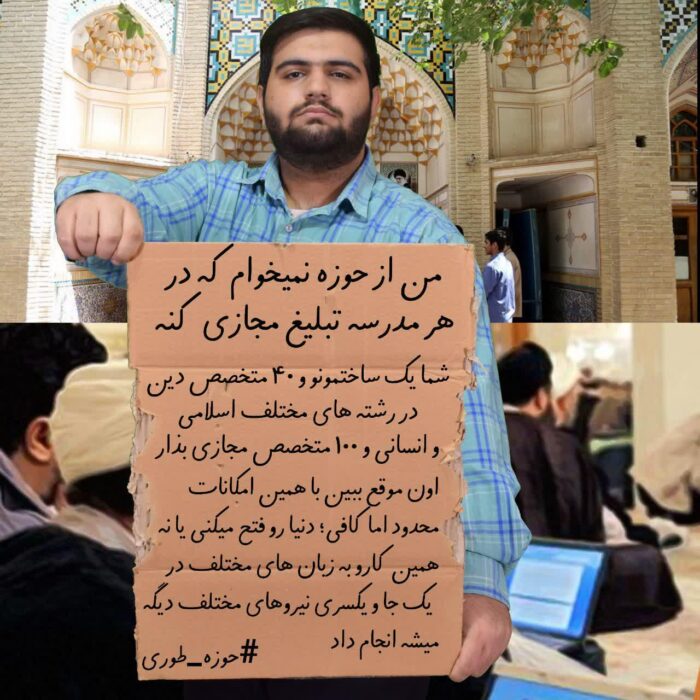 من از حوزه نمیخوام که در
هر مدرسه تبلیغ مجازی کنه
شما یک ساختمونو و ۴۰ متخصص دین
در رشته های مختلف اسلامی
و انسانی و ۱۰۰ متخصص مجازی بذار
اون موقع ببین با همین امکانات
محدود اما کافی؛ دنیا رو فتح میکنی یا نه
همین کارو به زبان های مختلف در
یک جا و یکسری نیروهای مختلف دیگه
میشه انجام داد
#حوزه_طوری